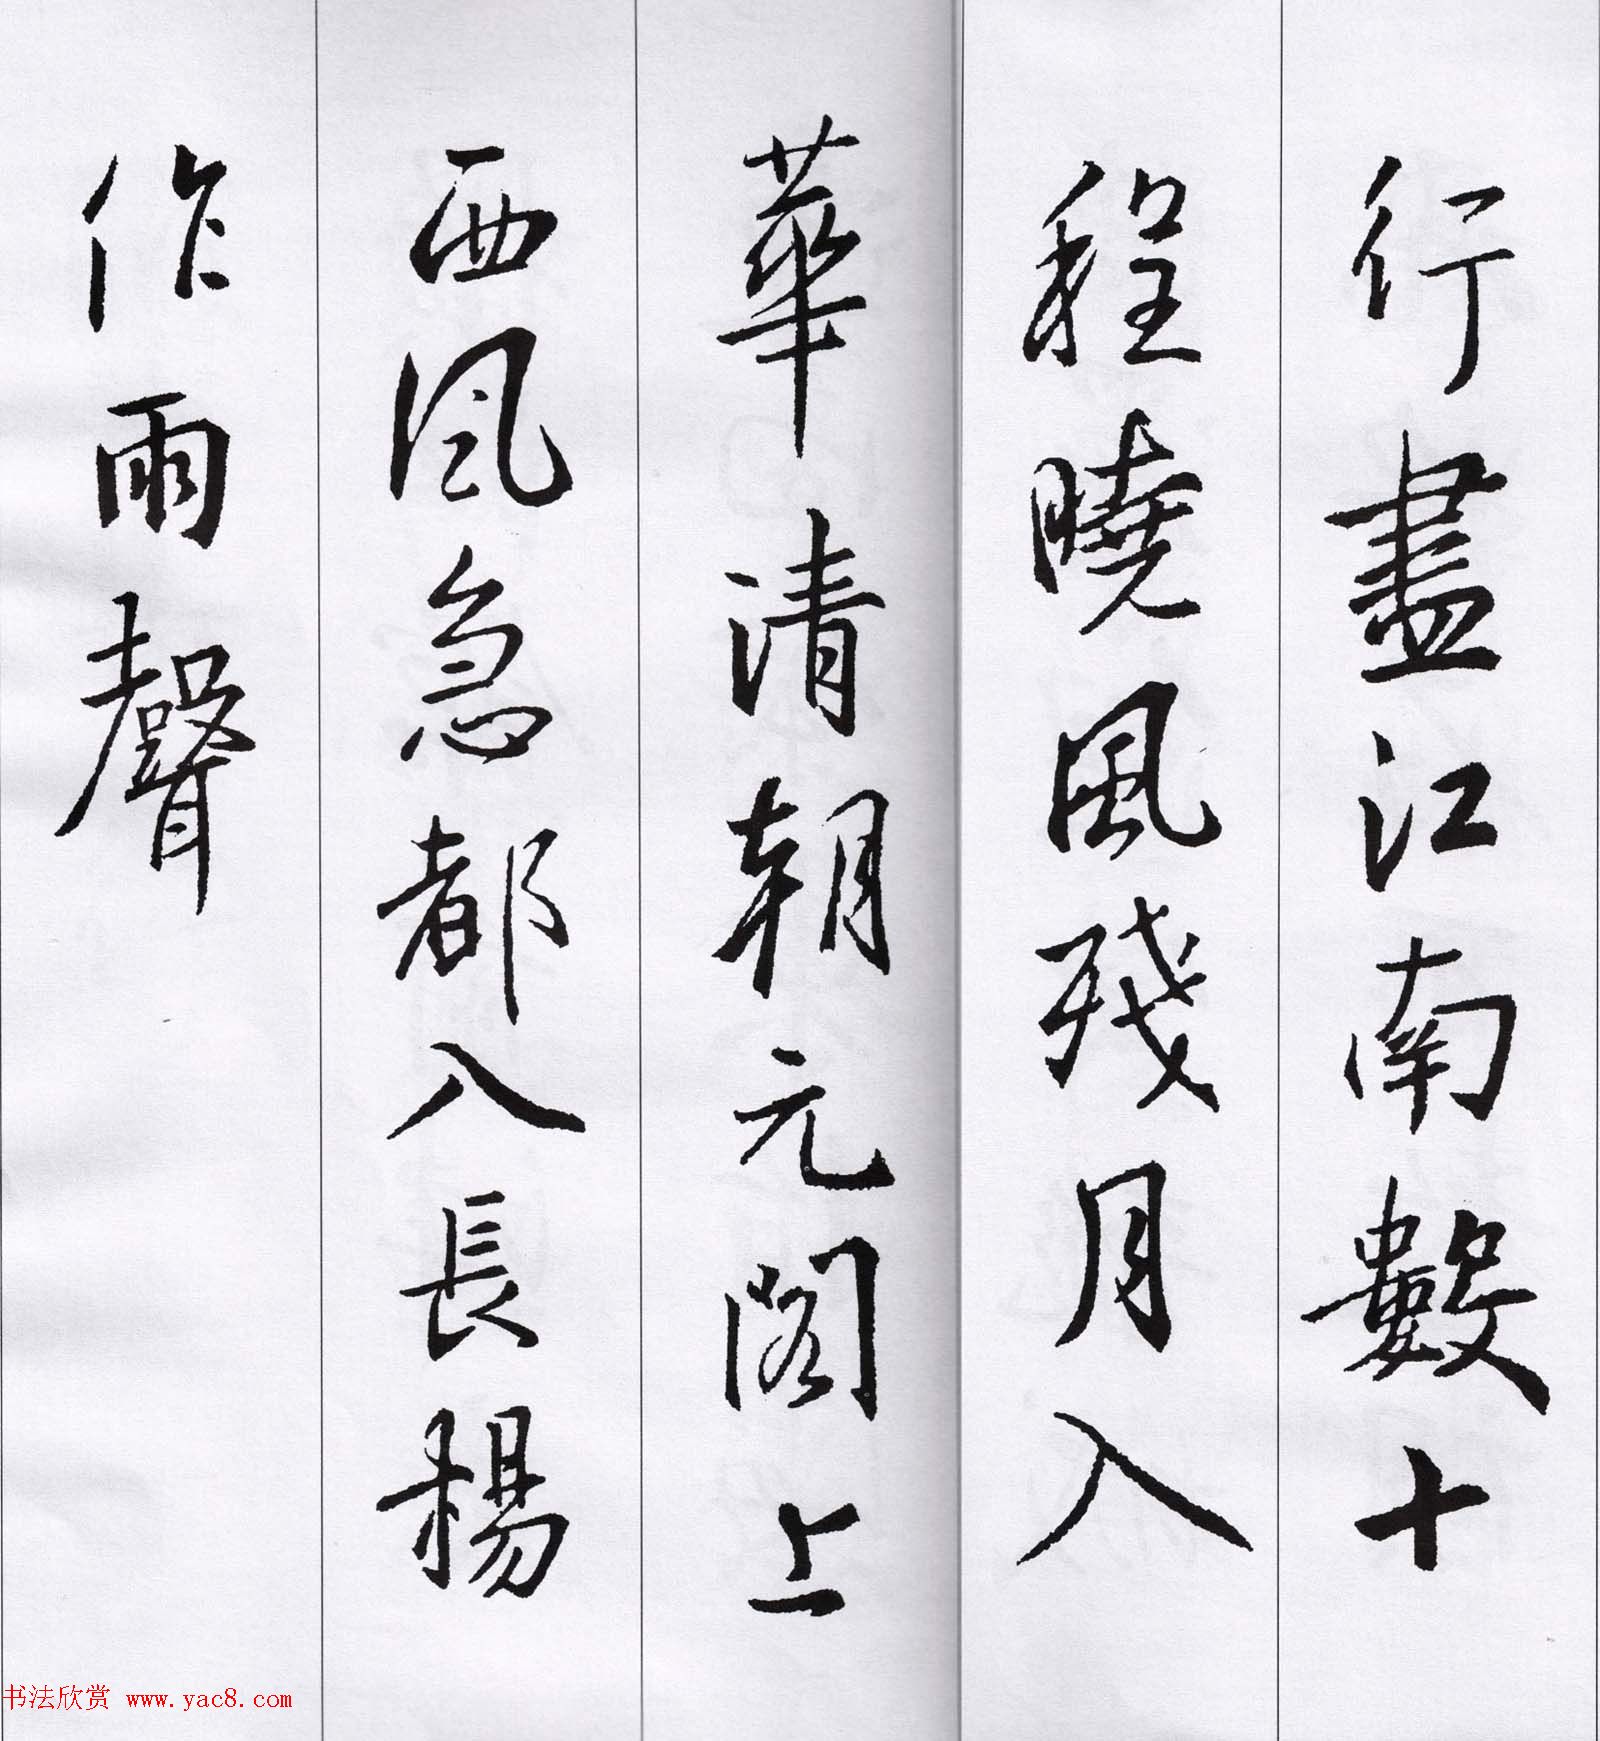 行盡江南數十
程曉風殘月入
華清朝元閣上
西風急都入長楊
作雨聲
书法欣赏 www.yac8.com